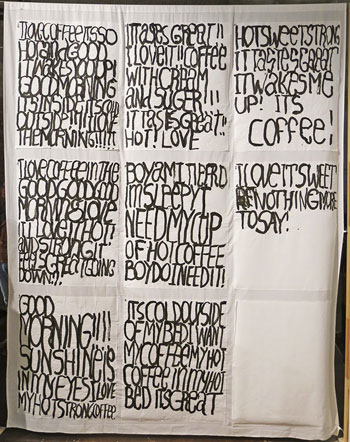 I LOVE COFFEE ITS SO
HOT SO GOOD
IT WAKES YOU UP!
GOOD MORNING
ITS INSIDE ITS COLD
OUTSIDE I LOVE
THE MORNING!!!!!
IT TASTES GREAT!!
I LOVE IT!! COFFEE
WITH CREAM
AND SUGER!!!
IT TASTES GREAT!!
HOT! LOVE
HOT SWEET STRONG
IT TASTES GREAT
IT WAKES ME
UP! ITS
COFFEE!
I LOVE COFFEE IN THE
GOOD GOOD GOOD
MORNING LOVE
I LOVE IT HOT!
AND STRONG IT
FEELS GREAT GOING
DOWN!!
BOY AM I TIERD
I'M SLEEPY I
NEED MY CUP
OF HOT COFFEE
BOY DO I NEED IT!
I LOVE IT SWEET
NOTHING MORE
TO SAY!
GOOD
MORNING!!!!
SUNSHINE IS
IN MY EYES I LOVE
MY HOT STRONG COFFEE
ITS COLD OUTSIDE
OF MY BED I WANT
MY COFFEE MY HOT
COFFEE IN MY HOT
BED ITS GREAT